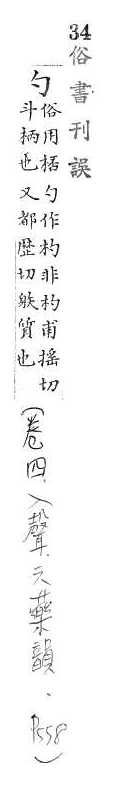 34
俗書刊誤
勺
俗用栝勺作杓非杓甫揺切
斗柄也又都歴切躲質也
(卷四、入聲、六藥韻、P558)